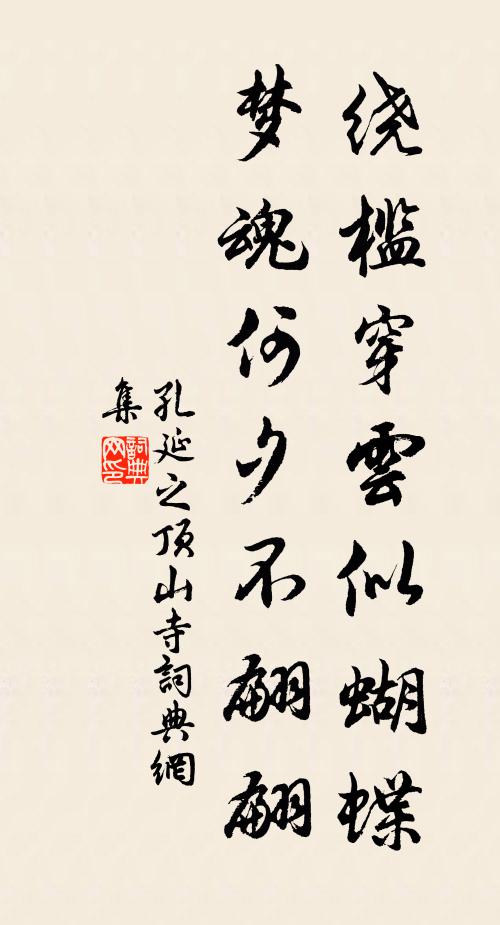 绕槛穿雲似蝴蝶
梦魂何夕不翩翩
孔延之顶山寺詞典網
集
詞典
网印